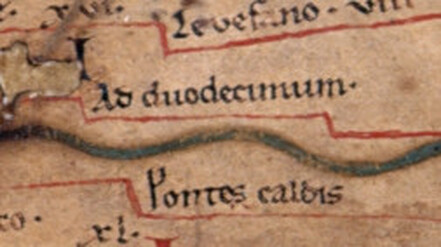 xvi.
Levefano. viii
Ad duodecimum.
Pontes caldis
co. xl.